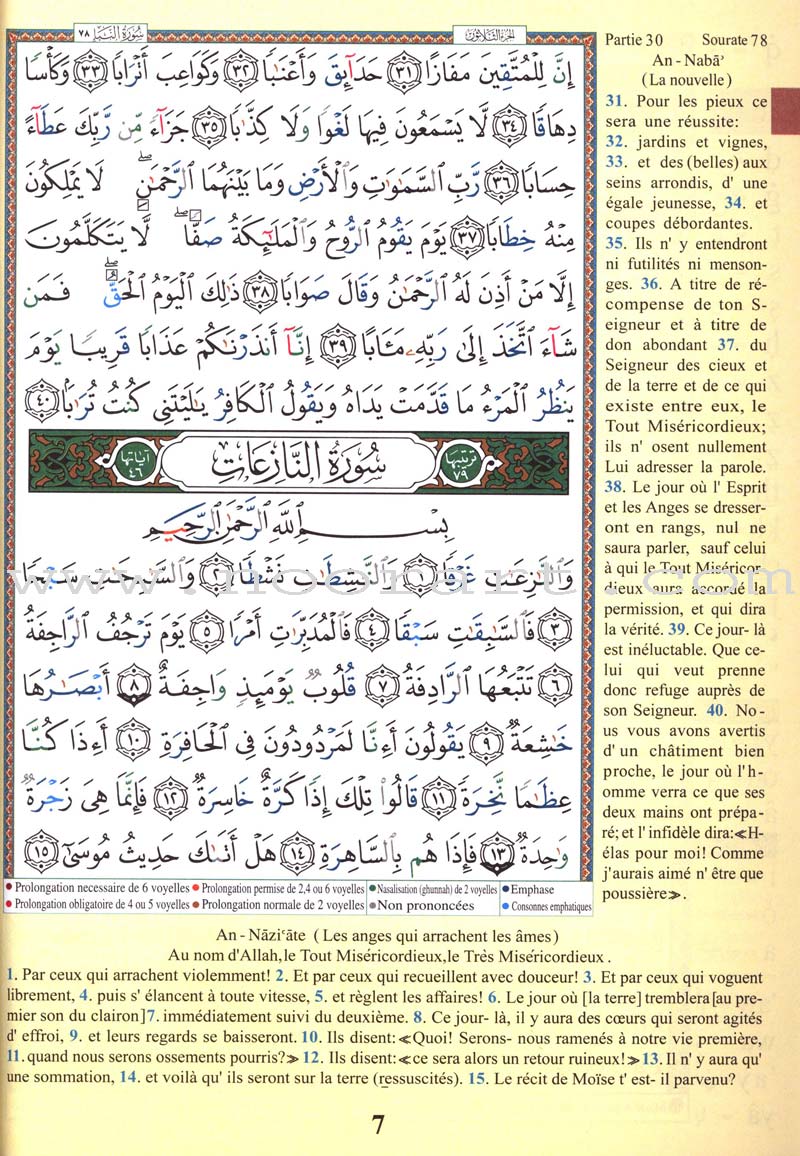 سُورَةُ النَّبَإِ ٧٨
الجُزءُ الثَّلَاثُون
إِنَّ لِلْمُتَّقِينَ مَفَازًا ٣١ حَدَآئِقَ وَأَعْنَـٰبًا ٣٢ وَكَوَاعِبَ أَتْرَابًا ٣٣ وَكَأْسًا
دِهَاقًا ٣٤ لَّا يَسْمَعُونَ فِيهَا لَغْوًا وَلَا كِذَّٰبًا ٣٥ جَزَآءً مِّن رَّبِّكَ عَطَآءً
حِسَابًا ٣٦ رَّبِّ ٱلسَّمَـٰوَٰتِ وَٱلْأَرْضِ وَمَا بَيْنَهُمَا ٱلرَّحْمَـٰنِۖ لَا يَمْلِكُونَ
مِنْهُ خِطَابًا ٣٧ يَوْمَ يَقُومُ ٱلرُّوحُ وَٱلْمَلَـٰٓئِكَةُ صَفًّاۖ لَّا يَتَكَلَّمُونَ
إِلَّا مَنْ أَذِنَ لَهُ ٱلرَّحْمَـٰنُ وَقَالَ صَوَابًا ٣٨ ذَٰلِكَ ٱلْيَوْمُ ٱلْحَقُّۖ فَمَن
شَآءَ ٱتَّخَذَ إِلَىٰ رَبِّهِۦ مَـَٔابًا ٣٩ إِنَّآ أَنذَرْنَـٰكُمْ عَذَابًا قَرِيبًا يَوْمَ
يَنظُرُ ٱلْمَرْءُ مَا قَدَّمَتْ يَدَاهُ وَيَقُولُ ٱلْكَافِرُ يَـٰلَيْتَنِى كُنتُ تُرَٰبًۢا ٤٠
ترتيبها ٧٩ سُورَةُ النَّازِعَاتِ آياتها ٤٦
بِسْمِ ٱللَّهِ ٱلرَّحْمَـٰنِ ٱلرَّحِيمِ
وَٱلنَّـٰزِعَـٰتِ غَرْقًا ١ وَٱلنَّـٰشِطَـٰتِ نَشْطًا ٢ وَٱلسَّـٰبِحَـٰتِ سَبْحًا
٣ فَٱلسَّـٰبِقَـٰتِ سَبْقًا ٤ فَٱلْمُدَبِّرَٰتِ أَمْرًا ٥ يَوْمَ تَرْجُفُ ٱلرَّاجِفَةُ
٦ تَتْبَعُهَا ٱلرَّادِفَةُ ٧ قُلُوبٌ يَوْمَئِذٍ وَاجِفَةٌ ٨ أَبْصَـٰرُهَا
خَـٰشِعَةٌ ٩ يَقُولُونَ أَءِنَّا لَمَرْدُودُونَ فِى ٱلْحَافِرَةِ ١٠ أَءِذَا كُنَّا
عِظَـٰمًا نَّخِرَةً ١١ قَالُوا۟ تِلْكَ إِذًا كَرَّةٌ خَاسِرَةٌ ١٢ فَإِنَّمَا هِىَ زَجْرَةٌ
وَٰحِدَةٌ ١٣ فَإِذَا هُم بِٱلسَّاهِرَةِ ١٤ هَلْ أَتَىٰكَ حَدِيثُ مُوسَىٰٓ ١٥
Prolongation necessaire de 6 voyelles Prolongation permise de 2,4 ou 6 voyelles Nasalisation (ghunnah) de 2 voyelles Emphase
Prolongation obligatoire de 4 ou 5 voyelles Prolongation normale de 2 voyelles Non prononcées Consonnes emphatiques
Partie 30 Sourate 78
An - Nabāʾ
(La nouvelle)
31. Pour les pieux ce
sera une réussite:
32. jardins et vignes,
33. et des (belles) aux
seins arrondis, d' une
égale jeunesse, 34. et
coupes débordantes.
35. Ils n' y entendront
ni futilités ni menson-
ges. 36. A titre de ré-
compense de ton S-
eigneur et à titre de
don abondant 37. du
Seigneur des cieux et
de la terre et de ce qui
existe entre eux, le
Tout Miséricordieux;
ils n' osent nullement
Lui adresser la parole.
38. Le jour où l' Esprit
et les Anges se dresser-
ont en rangs, nul ne
saura parler, sauf celui
à qui le Tout Miséricor-
dieux aura accordé la
permission, et qui dira
la vérité. 39. Ce jour- là
est inéluctable. Que ce-
lui qui veut prenne
donc refuge auprès de
son Seigneur. 40. No-
us vous avons avertis
d' un châtiment bien
proche, le jour où l' h-
omme verra ce que ses
deux mains ont prépa-
ré; et l' infidèle dira:≪H-
élas pour moi! Comme
j'aurais aimé n' être que
poussière≫.
www.noorart.com
An - Nāziʿāte ( Les anges qui arrachent les âmes)
Au nom d'Allah,le Tout Miséricordieux,le Très Miséricordieux .
1. Par ceux qui arrachent violemment! 2. Et par ceux qui recueillent avec douceur! 3. Et par ceux qui voguent
librement, 4. puis s' élancent à toute vitesse, 5. et règlent les affaires! 6. Le jour où [la terre] tremblera [au pre-
mier son du clairon] 7. immédiatement suivi du deuxième. 8. Ce jour- là, il y aura des cœurs qui seront agités
d' effroi, 9. et leurs regards se baisseront. 10. Ils disent:≪Quoi! Serons- nous ramenés à notre vie première,
11. quand nous serons ossements pourris?≫ 12. Ils disent:≪ce sera alors un retour ruineux!≫ 13. Il n' y aura qu'
une sommation, 14. et voilà qu' ils seront sur la terre (ressuscités). 15. Le récit de Moïse t' est- il parvenu?
7